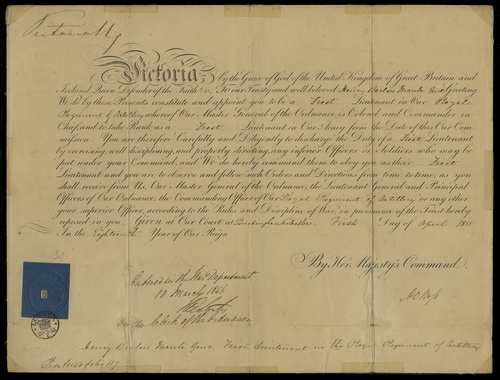 Victoria R
Victoria, by the Grace of God of the United Kingdom of Great Britain and
Ireland Queen Defender of the Faith &c. To Our Trusty and well beloved Henry Gent Greeting
We do by these Presents constitute and appoint you to be First Lieutenant in Our Royal
Regiment of Artillery whereof Our Master General of the Ordnance is Colonel and Commander in
Chief, and to take Rank as a First Lieutenant in Our Army from the Date of this Our Com-
mission You are therefore Carefully and Diligently to discharge the Duty of a First Lieutenant
by exercising, well disciplining, and properly directing such inferior Officers and Soldiers who may be
put under your Command, and We do hereby command them to obey you as their First
Lieutenant and you are to observe and follow such Orders and Directions from time to time, as you
shall receive from Us, Our Master General of the Ordnance, the Lieutenant General and Principal
Officers of Our Ordnance, the Commanding Officer of Our Royal Regiment of Artillery or any other
your superior Officer, according to the Rules and Discipline of War, in pursuance of the Trust hereby
reposed in you. Given at Our Court at First Day of April 1855
In the Eighteenth Year of Our Reign
By Her Majesty's Command.
Entered in the Department
13 March 1856
Clerk of the Ordnance
Henry Gent First Lieutenant in the Royal Regiment of Artillery